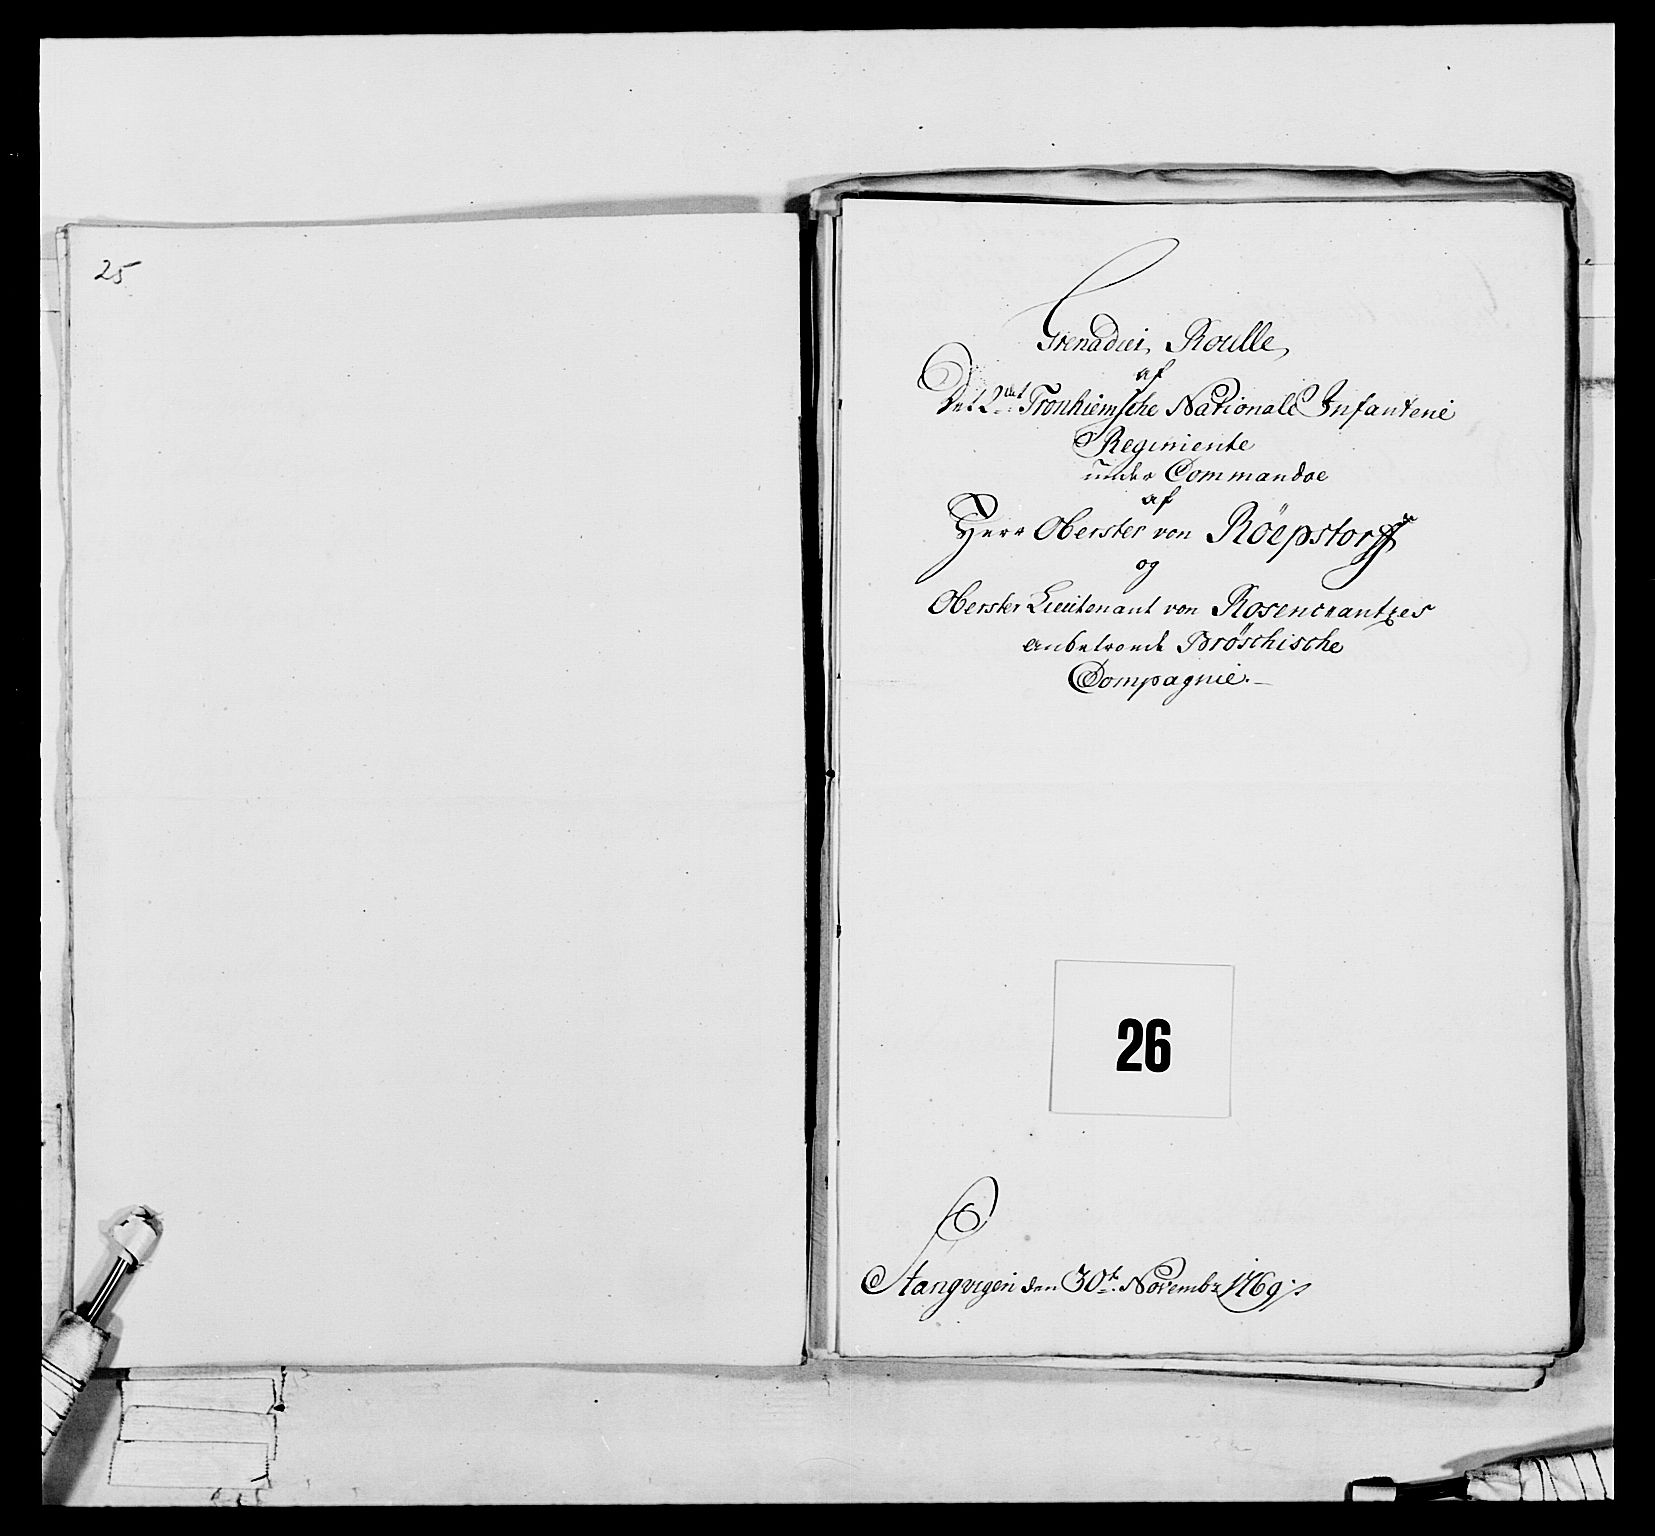 25
Grenadier Roulle,
af
Det 2det Tronhiemsche Nationale Infanterie
Regimente
under Commandoe
af
Herr Oberster von Röepstorff
og
Oberster Lieutenant von Rosencrantzes
anbetroede Bröschische
Compagnie.
26
Stangvigen den 30te Novembr 1769.